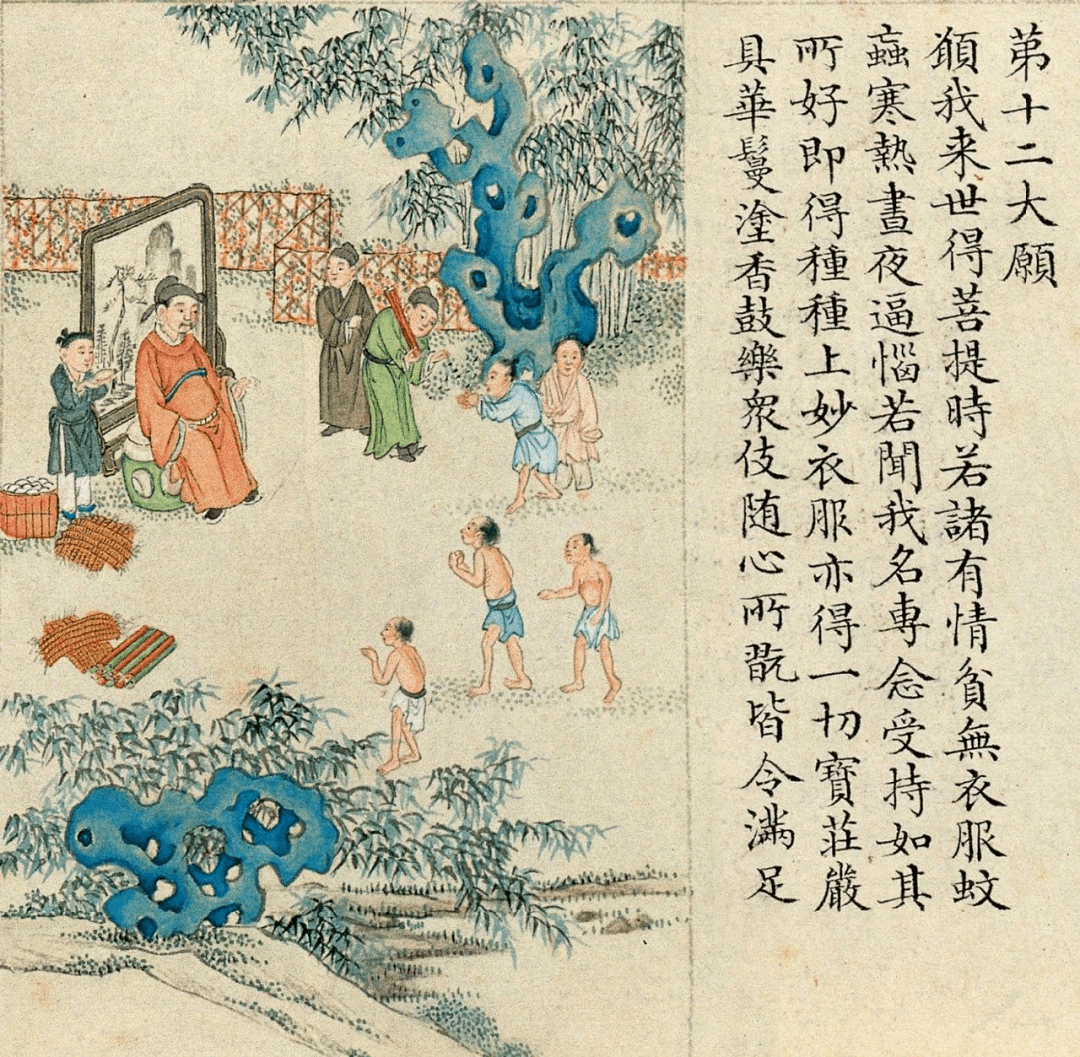 苐十二大願
願我来世得菩提時若諸有情貧無衣服蚊
蝱寒熱晝夜逼惱若聞我名専念受持如其
所好即得種種上妙衣服亦得一切寶莊嚴
具華鬘塗香鼓樂衆伎随心所翫皆令滿足